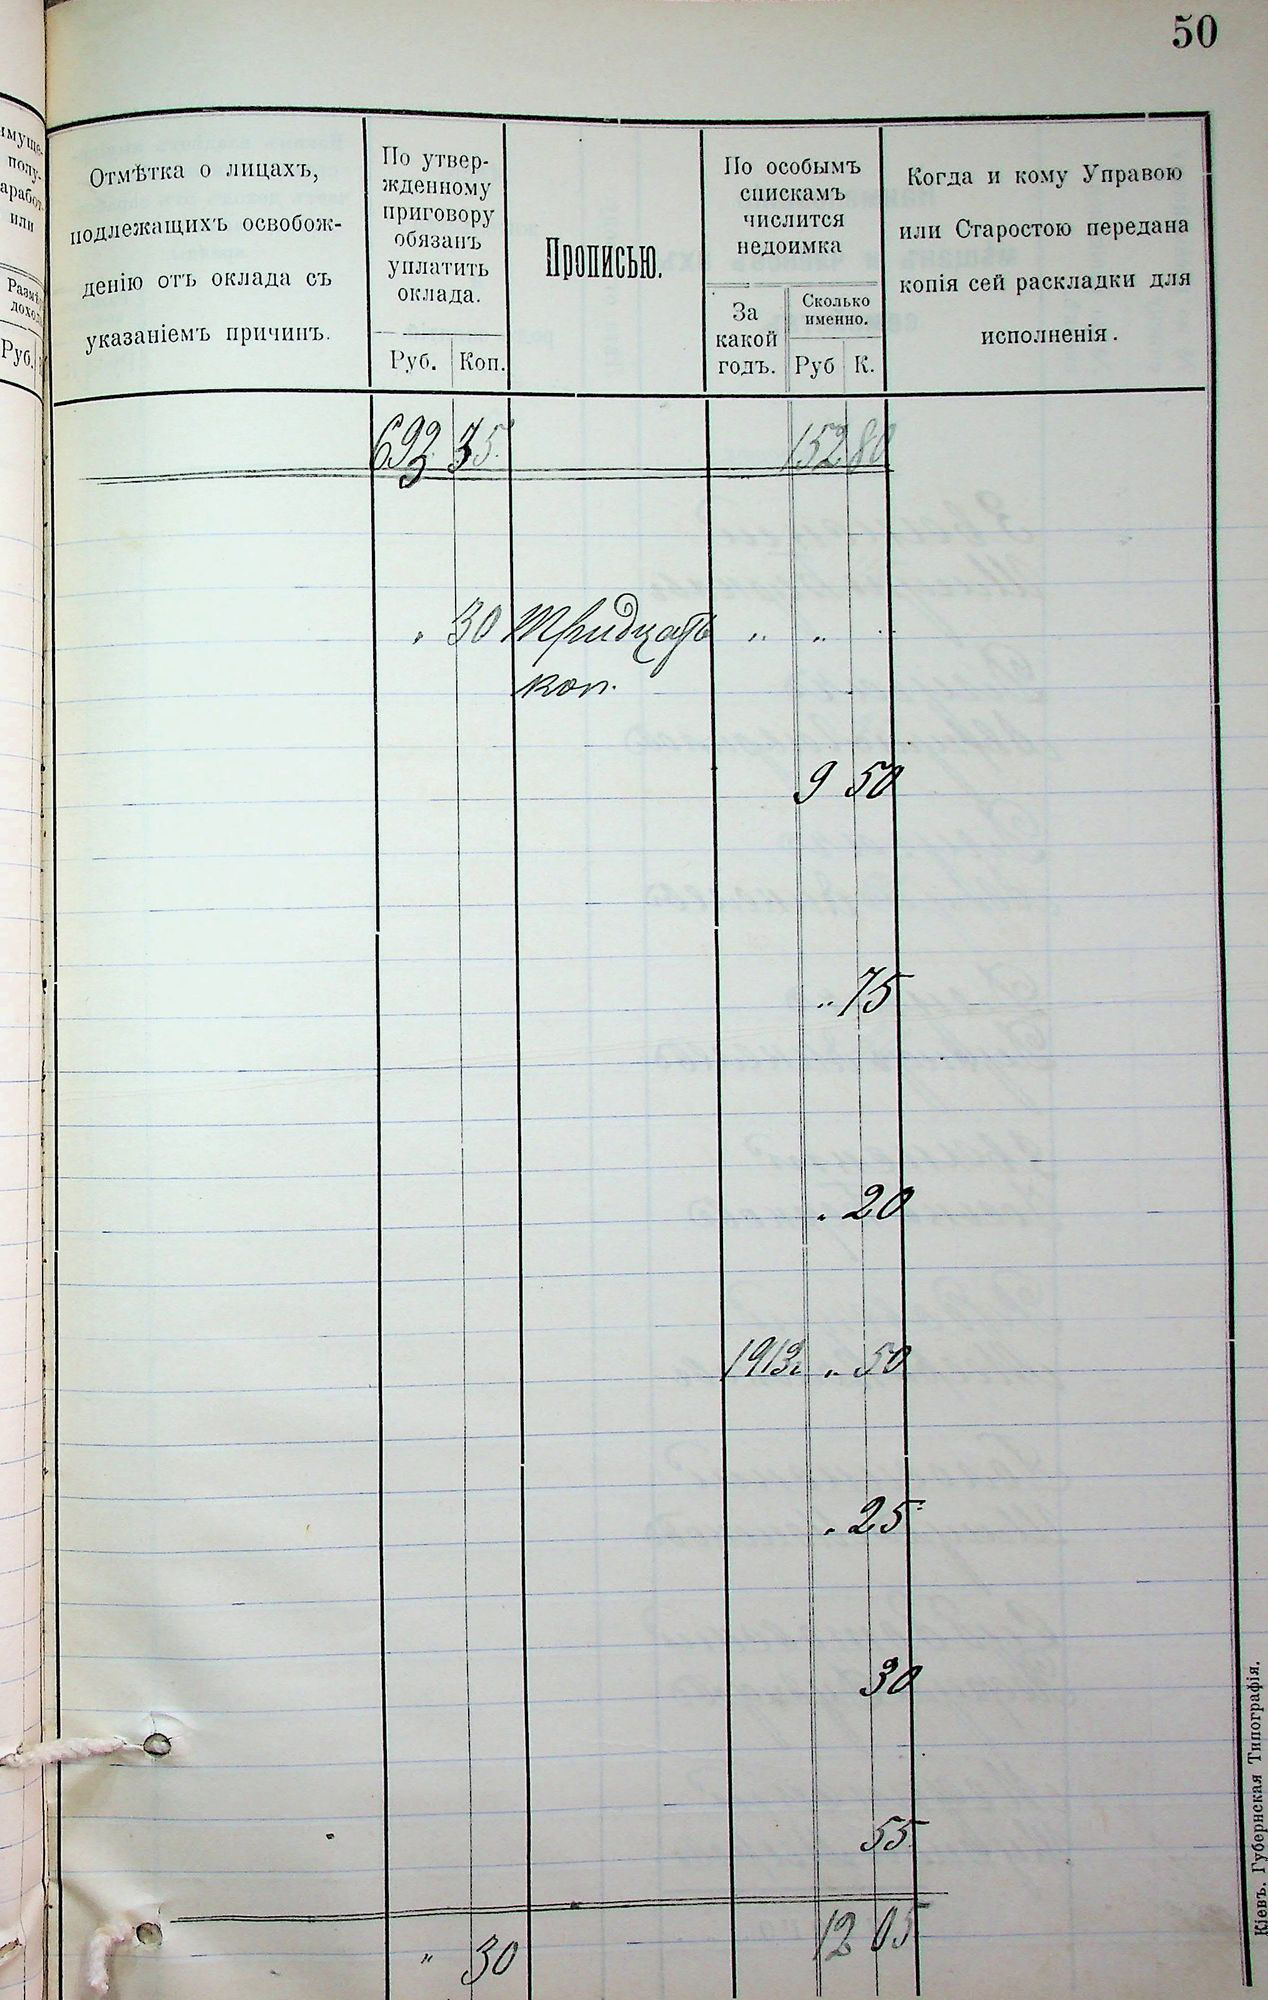 50
Отмѣтка о лицахъ,
подлежащихъ освобож-
денію отъ оклада съ
указаніемъ причинъ.
По утвер-
жденному
приговору
обязанъ
уплатить
оклада.
Руб. Коп.
Прописью.
По особымъ
спискамъ
числится
недоимка
За
какой
годъ.
Сколько
именно.
Руб К.
Когда и кому Управою
или Старостою передана
копія сей раскладки для
исполненія.
35 152 80
" 30 Тридцать " " "
коп.
9 50
" 75
" 20
1913г. " 50
" 25
30
55
" 30 12 05
Кіевъ. Губернская Типографія.
имуще-
полу-
или
Руб.